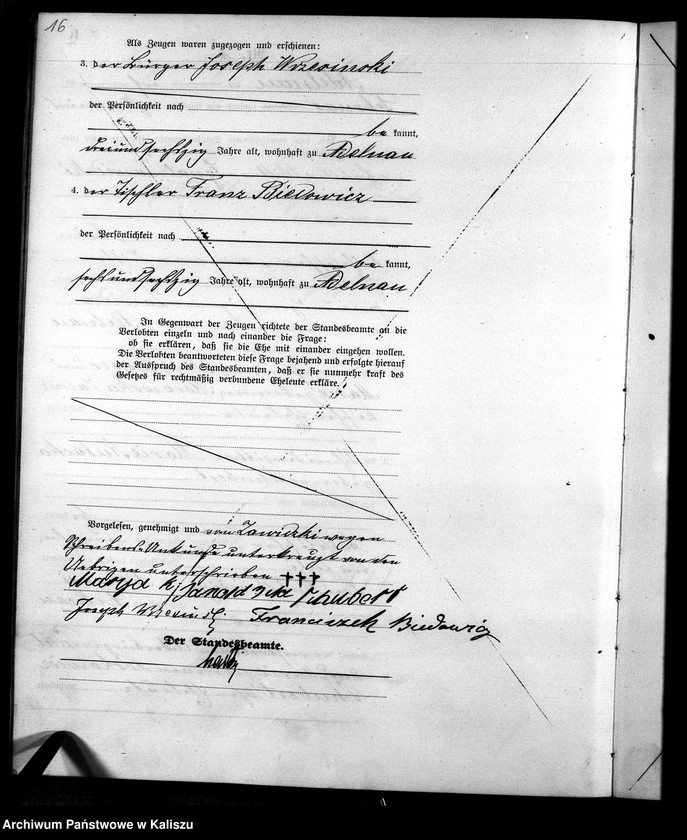 16
Als Zeugen waren zugezogen und erschienen:
3. der Bürger Joseph Wrzesinski
der Persönlichkeit nach
be kannt,
dreiundsechszig Jahre alt, wohnhaft zu Adelnau
4. der Tischler Franz Biedowicz
der Persönlichkeit nach
be kannt,
sechsundsechszig Jahre alt, wohnhaft zu Adelnau
In Gegenwart der Zeugen richtete der Standesbeamte an die
Verlobten einzeln und nach einander die Frage:
ob sie erklären, daß sie die Ehe mit einander eingehen wollen.
Die Verlobten beantworteten diese Frage bejahend und erfolgte hierauf
der Ausspruch des Standesbeamten, daß er sie nunmehr kraft des
Gesetzes für rechtmäßig verbundene Eheleute erkläre.
Vorgelesen, genehmigt und von Zawidzki wegen
Schreibens-Unkunde unterkreuzt von den
Uebrigen unterschrieben †††
Marya
Joseph Franciszek Biedowiz
Der Standesbeamte.
Archiwum Państwowe w Kaliszu